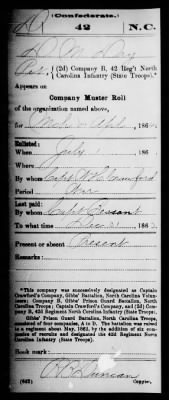 (Confederate.)
42 N.C.
(2d) Company B, 42 Reg't North
Carolina Infantry (State Troops).*
Appears on
Company Muster Roll
of the organization named above,
for 186
Enlisted:
When July
Where
By whom Capt Crawford
Period War
Last paid:
By whom Capt Besant
To what time Dec 31 186
Present or absent Present
Remarks:
*This company was successively designated as Captain
Crawford's Company, Gibbs' Battalion, North Carolina Volun-
teers; Company B, Gibbs' Prison Guard Battalion, North
Carolina Troops; Captain Crawford's Company, and (2d) Com-
pany B, 42d Regiment North Carolina Infantry (State Troops).
Gibbs' Prison Guard Battalion, North Carolina Troops,
consisted of four companies, A to D. The battalion was raised
to a regiment about May, 1862, by the addition of six com-
panies of recruits and designated the 42d Regiment North
Carolina Infantry (State Troops).
Book mark:
Duncan
(642) Copyist.